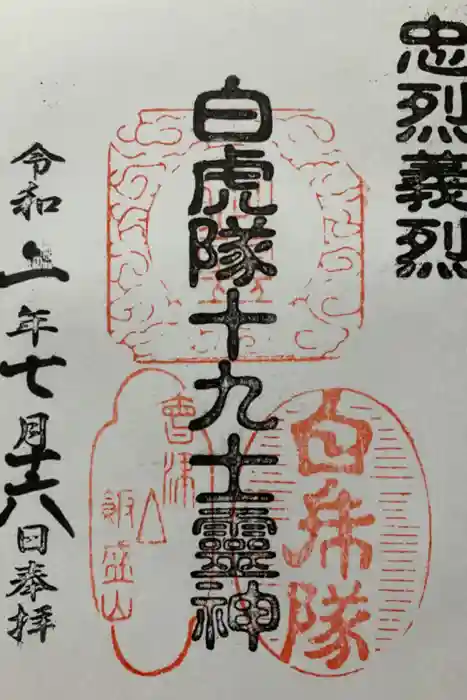 忠烈義烈
白虎隊十九士靈神
白乕隊
會津
飯盛山
令和 年七月十六日奉拝